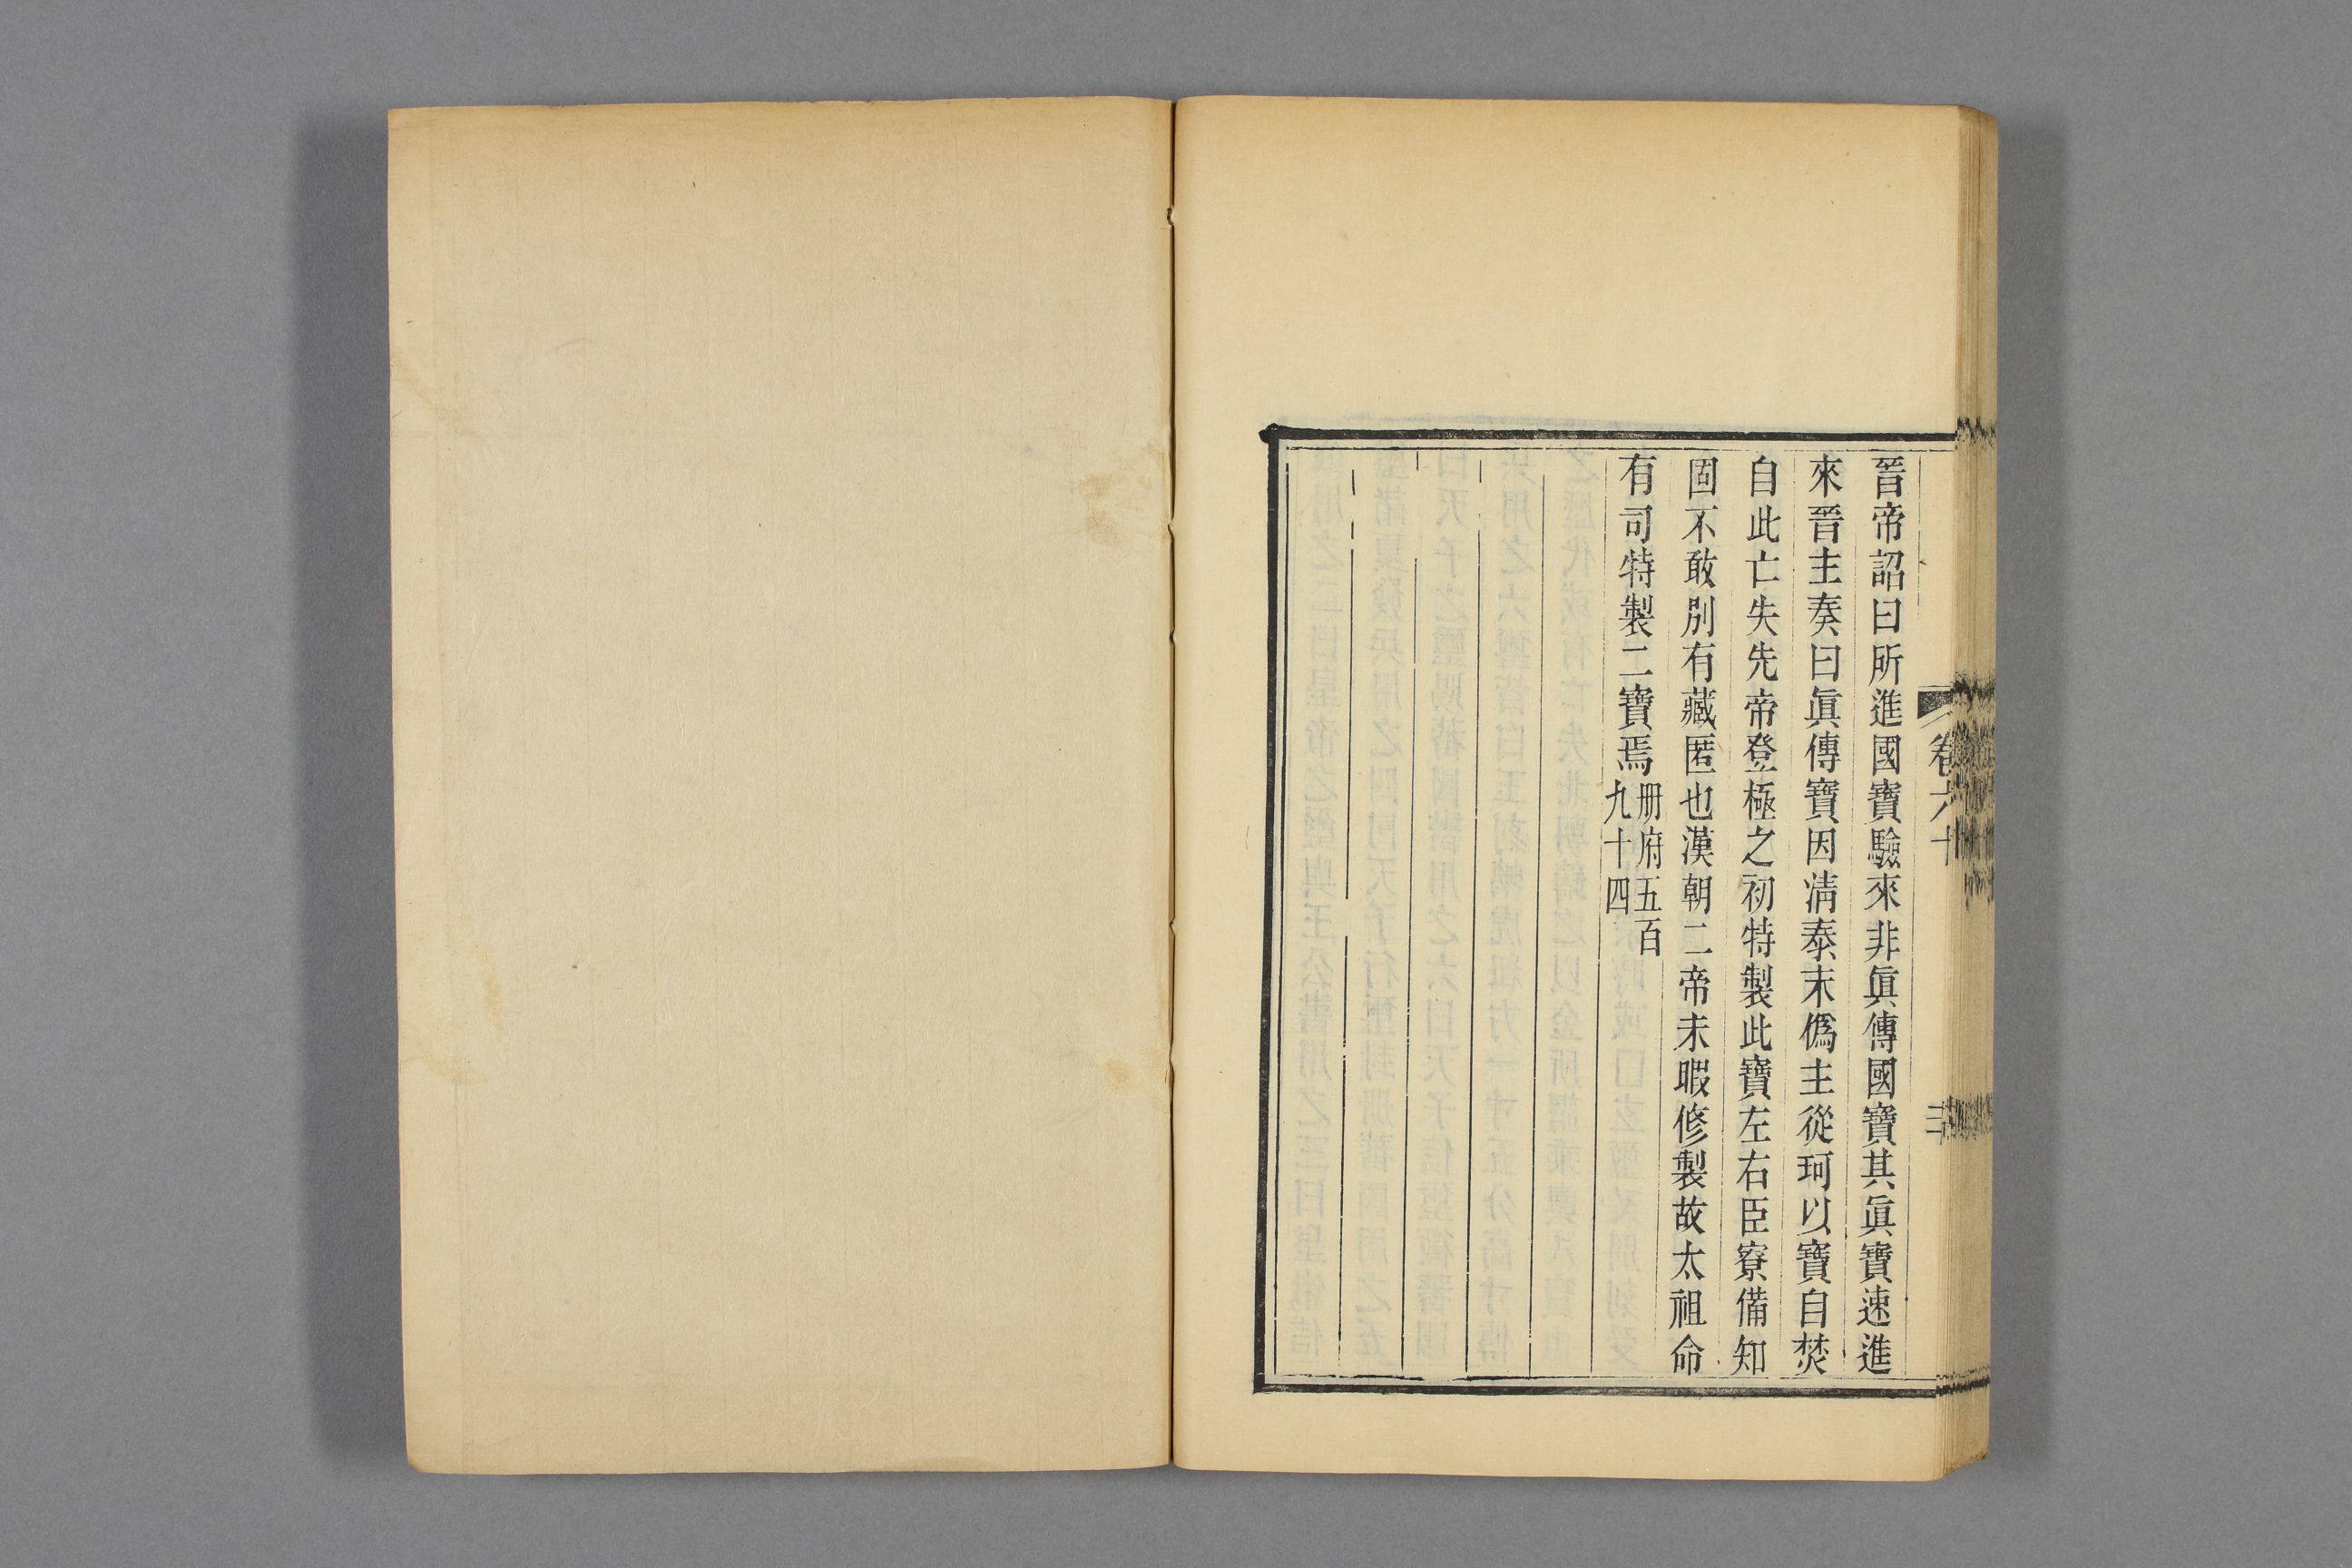 晉帝詔曰所進國寶驗來非眞傳國寶其眞寶速進
來晉主奏曰眞傳寶因淸泰末僞主從珂以寶自焚
自此亡失先帝登極之初特製此寶左右臣寮備知
固不敢別有藏匿也漢朝二帝未暇修製故太祖命
有司特製二寶焉册府五百
九十四
卷六十
三